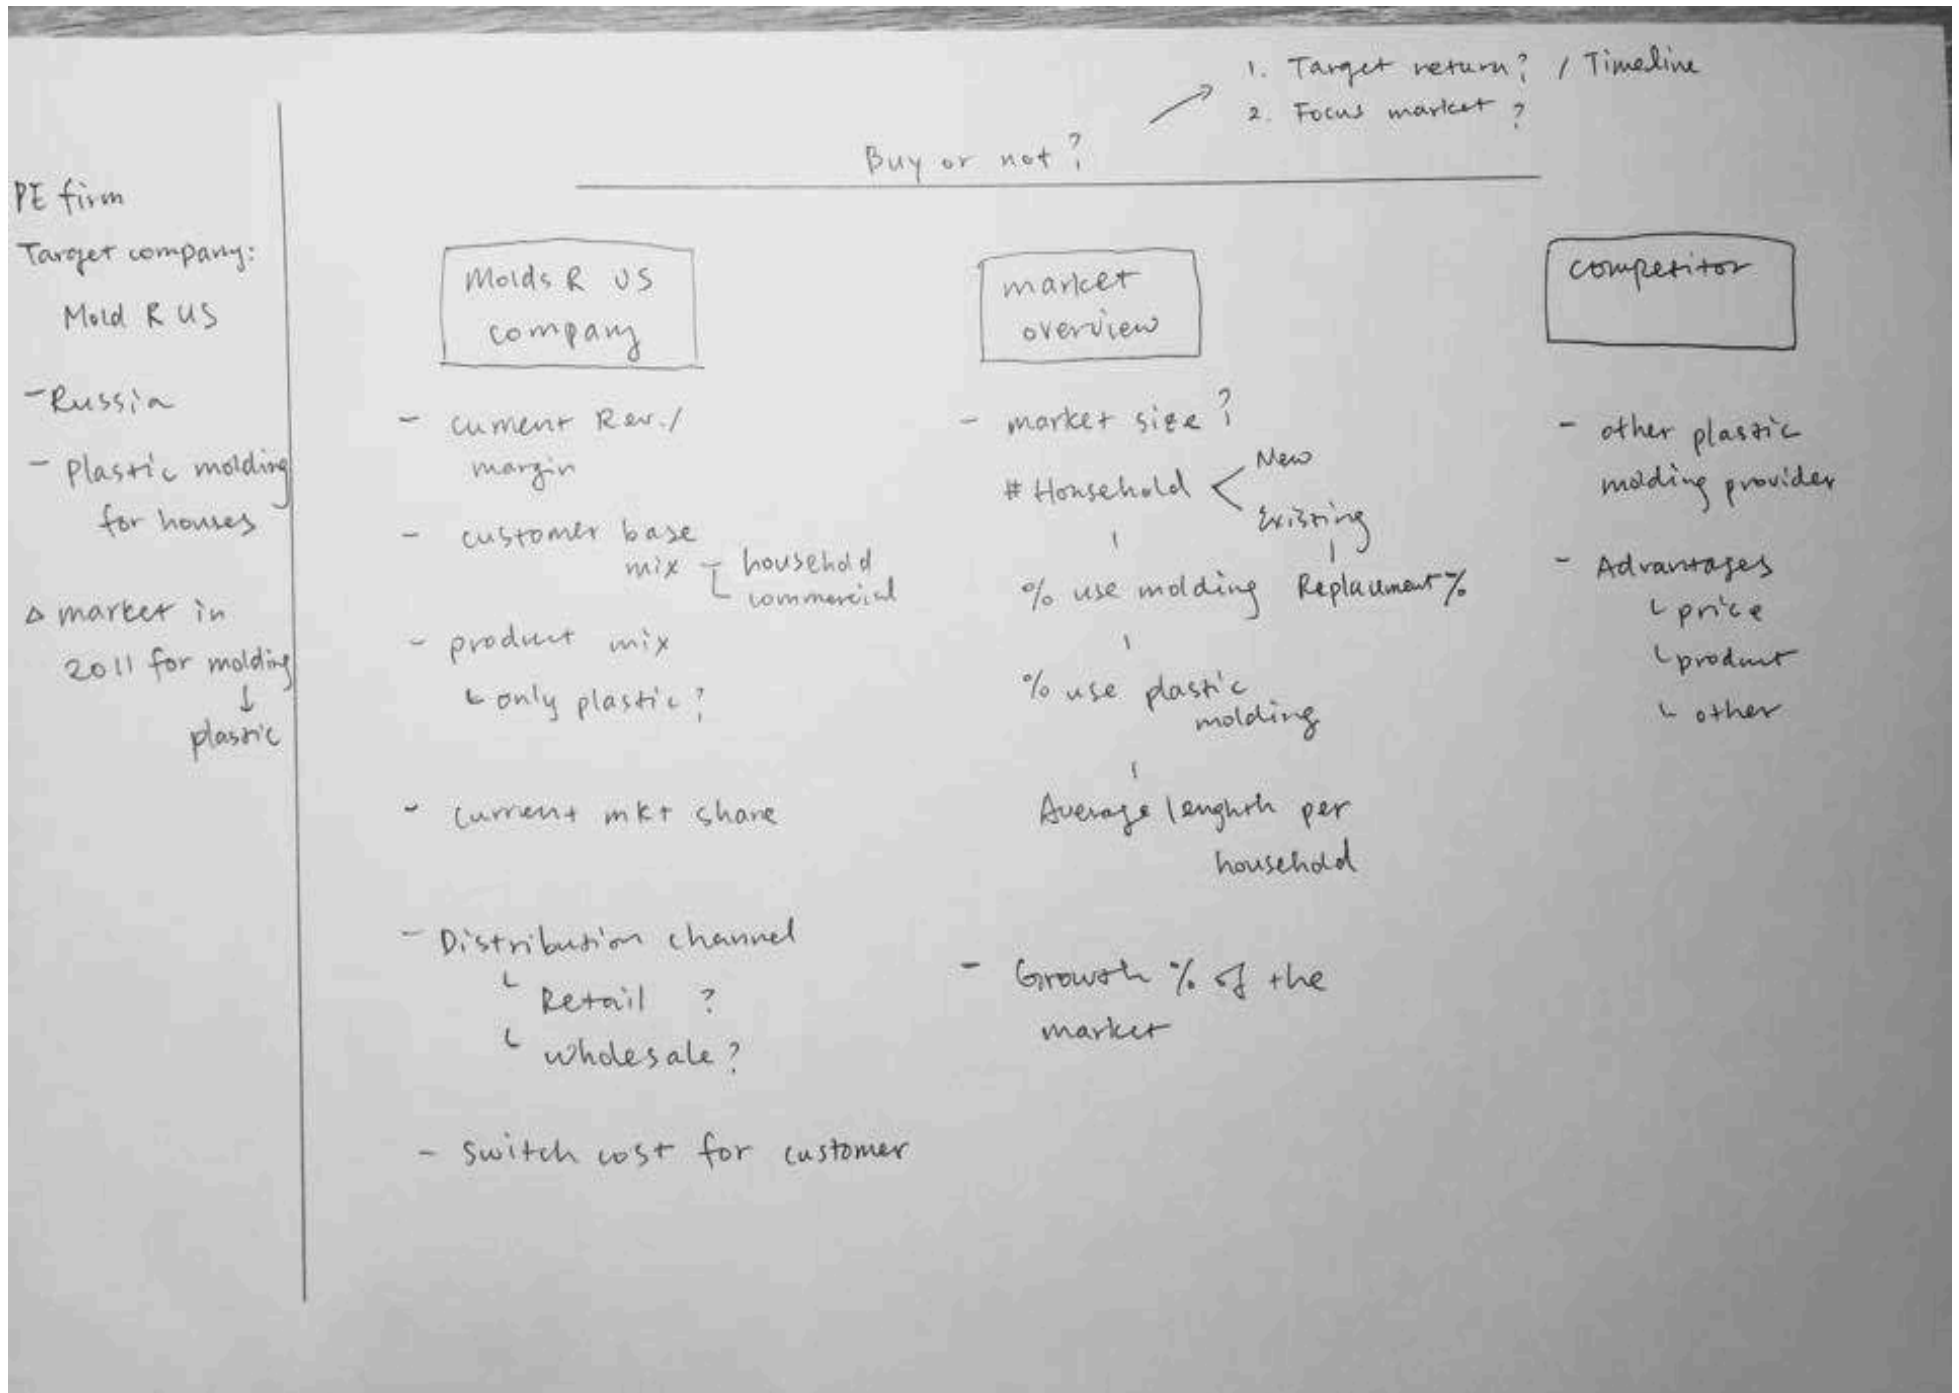 PE firm
Target company:
Mold R US
- Russia
- Plastic molding
for houses
△ market in
2011 for molding
↓
plastic
1. Target return? / Timeline
2. Focus market?
Buy or not?
Molds R US
company
- current Rev./
margin
- customer base
mix - household
commercial
- product mix
└ only plastic?
- current mkt share
- Distribution channel
└ Retail ?
└ wholesale?
- Switch cost for customer
market
overview
- market size?
# Household < New
Existing
% use molding Replacement %
% use plastic
molding
Average lenghth per
household
- Growth % of the
market
competitor
- other plastic
molding provider
- Advantages
└ price
└ product
└ other